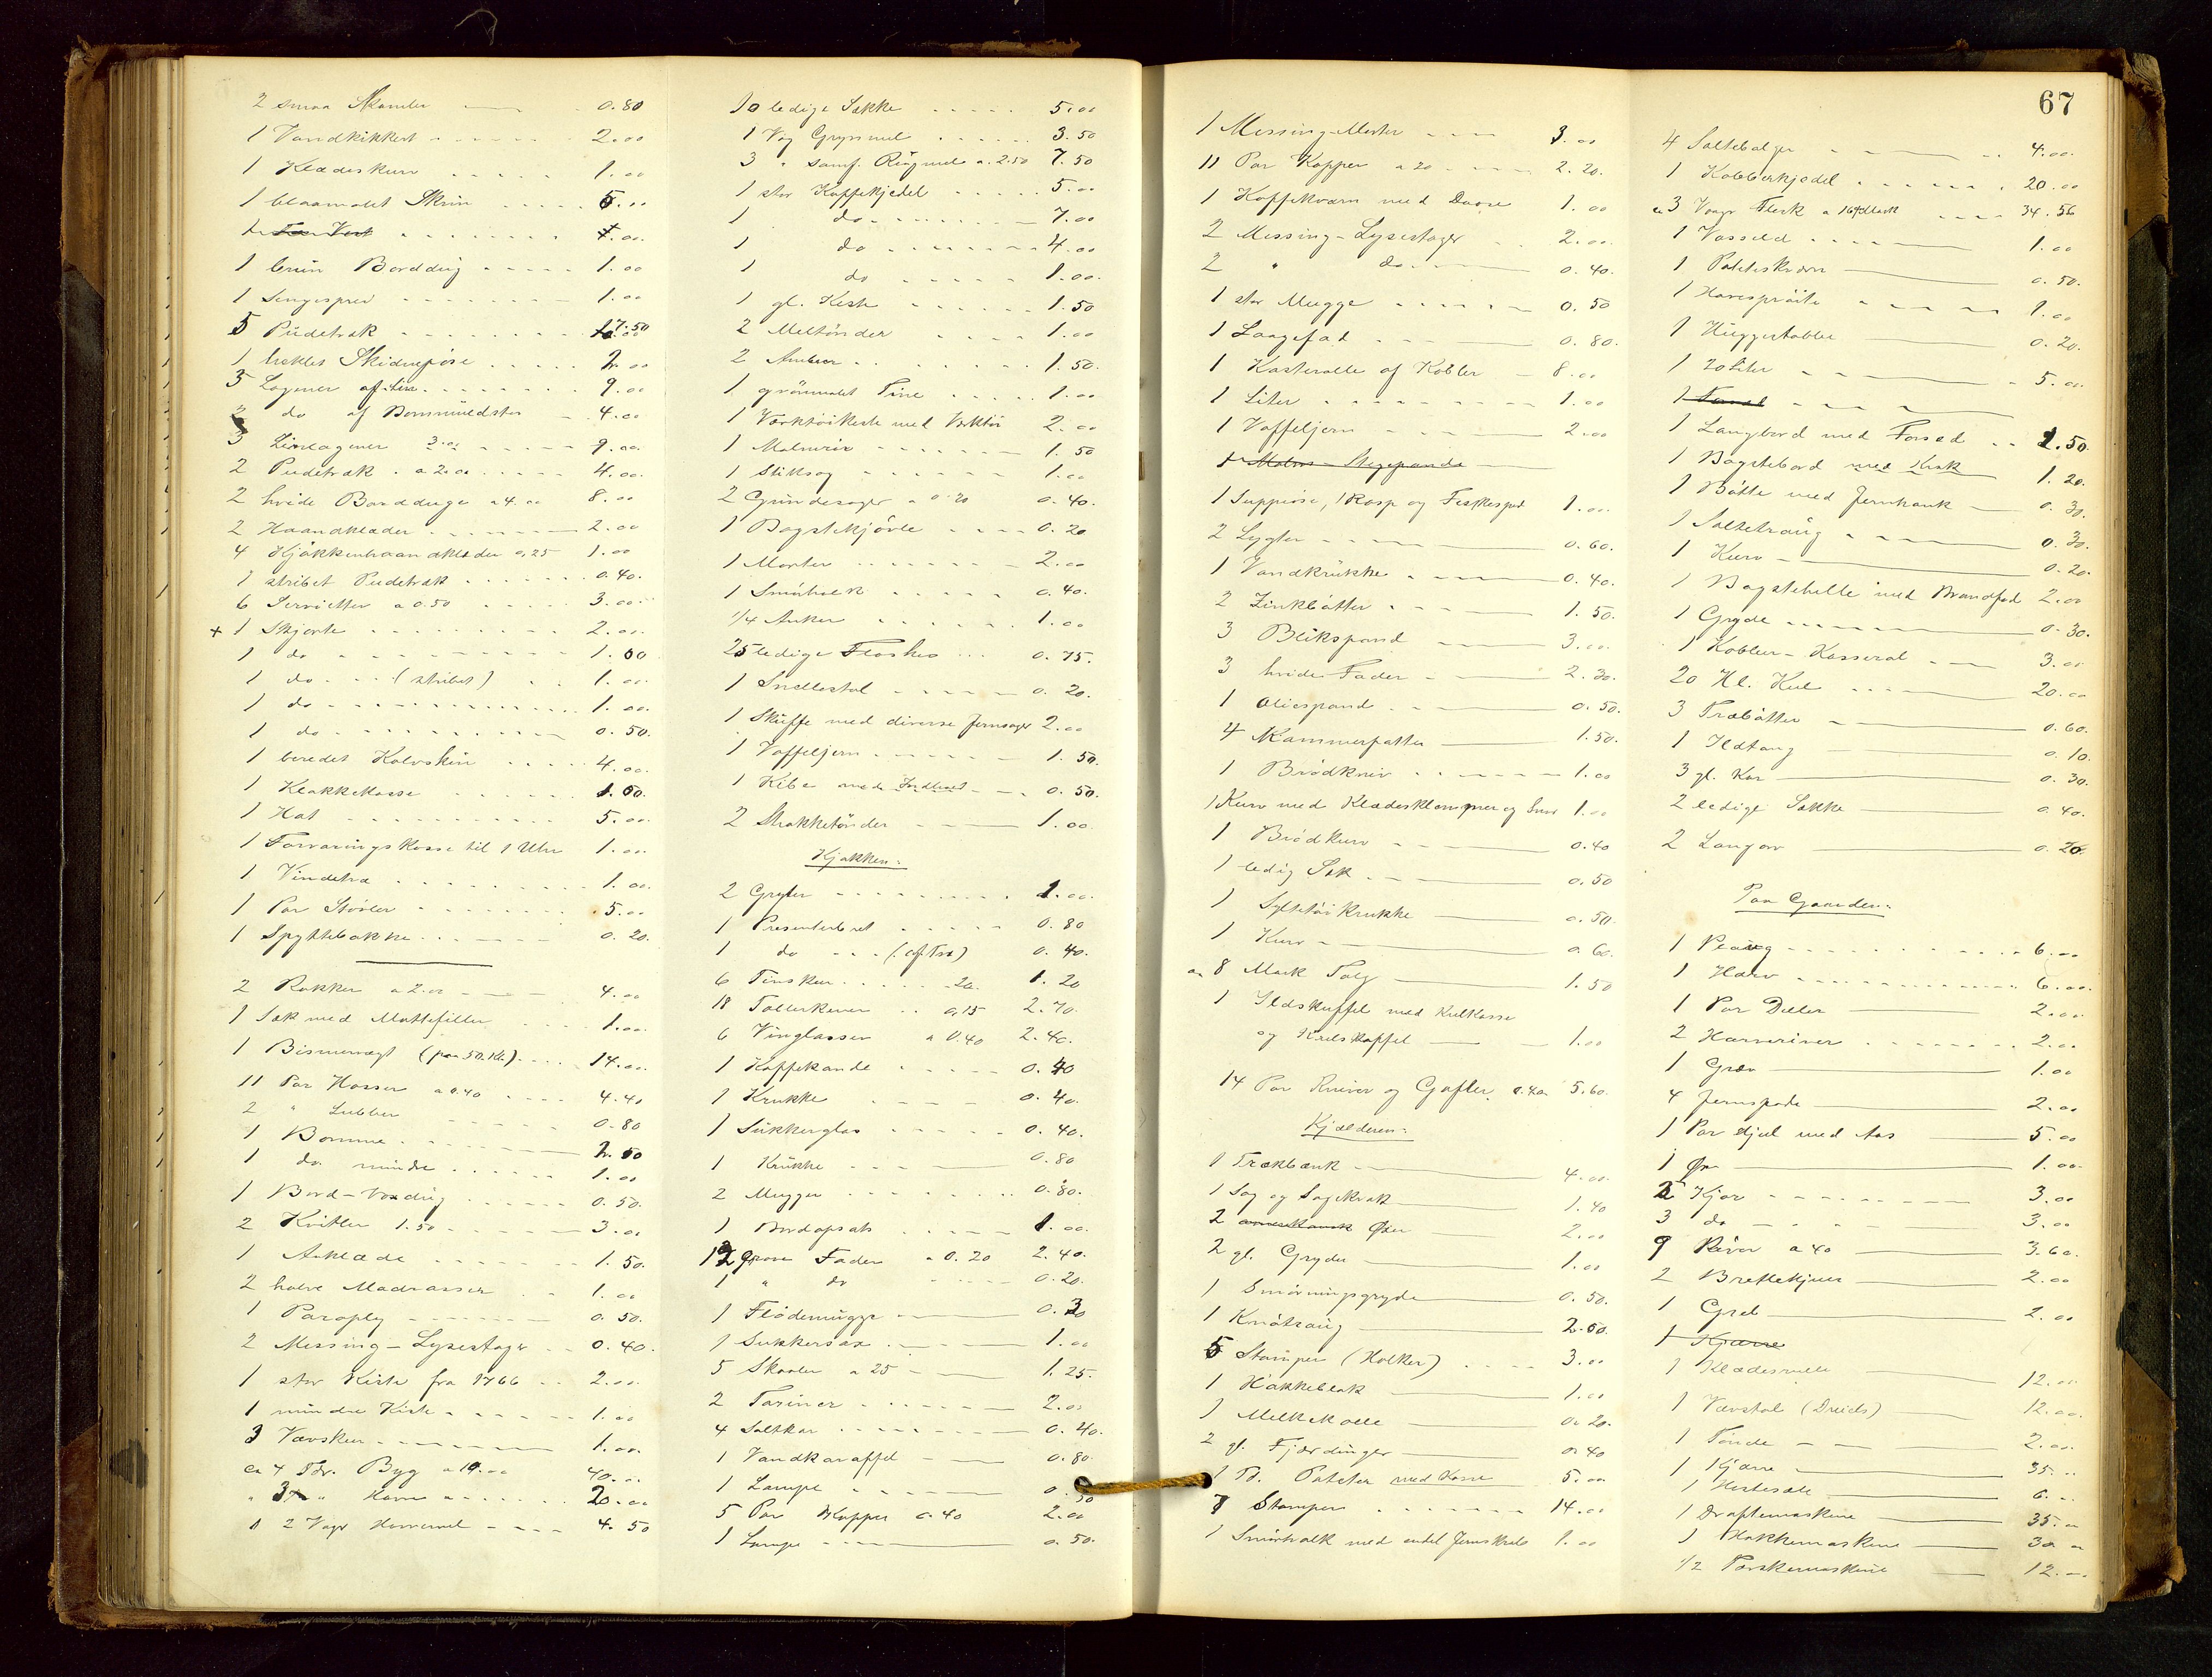 2 smaa Skamler 0.80
1 Vandkikkert 2.00
1 Klædeskurv 1.00
1 blaamalet Skrin 5.00
1 4.00
1 brun Borddug 1.00
1 Sengespred 1.00
5 Pudetræk 7.50
1 heklet Skidenpose 2.00
3 Lagener af Lin 9.00
2 do af Bommuldstøi 4.00
3 Linlagener 3.00 9.00
2 Pudetræk a 2.00 4.00
2 hvide Bordduge a 4.00 8.00
2 Haandklæder 2.00
4 Kjøkkenhaandklæder 0.25 1.00
1 stribet Pudetræk 0.40
6 Servietter a 0.50 3.00
+ 1 Skjorte 2.00
1 do 1.00
1 do (stribet) 1.00
1 do 1.00
1 do 0.50
1 beredet Kalvskin 4.00
1 Klokkekasse 1.00
1 Hat 5.00
1 Forvaringskasse til 1 Uhr 1.00
1 Vindetræ 1.00
1 Par Støvler 5.00
1 Spyttebakke 0.20
2 Rokker a 2.00 4.00
1 Sæk med Mattefiller 1.00
1 Bismervægt (paa 50 Kl.) 14.00
11 Par Hosser a 0.40 4.40
2 " Lubber 0.80
1 Bomme 2.50
1 do mindre 1.00
1 Bord-Voxdug 0.50
2 Kvitler 1.50 3.00
1 Aaklæde 1.50
2 halve Madrasser 1.00
1 Paraply 0.50
2 Messing-Lysestager 0.40
1 stor Kiste fra 1766 2.00
1 mindre Kiste 1.00
3 Vævskeer 1.00
ca 4 Tdr. Byg a 10.00 40.00
" 3 " Havre 20.00
" 2 Vagr Havremel 4.50
10 ledige Sække 5.00
1 Vog Grynmel 3.50
3 " samf. Rugmel a 2.50 7.50
1 stor Kaffekjedel 5.00
1 do 7.00
1 do 4.00
1 do 1.00
1 gl. Kiste 1.50
2 Meltønder 1.00
2 Ambar 1.50
1 grønmalet Tine 1.00
1 Værktøikiste med Værktøi 2.00
1 Malmriv 1.50
1 Stiksag 1.00
2 Grindesager a 0.20 0.40
1 Bagstekjøvle 0.20
1 Morter 2.00
1 Smørholk 0.40
1/4 Anker 1.00
25 ledige Flasker 0.75
1 Snellestol 0.20
1 Skuffe med diverse Jernsager 2.00
1 Vaffeljern 1.50
1 Kibe med Indhold 0.50
2 Strokketønder 1.00
Kjøkken:
2 Gryter 1.00
1 Presenterbret 0.80
1 do (af Træ) 0.40
6 Tinskeer 20 1.20
18 Tallerkener 0.15 2.70
6 Vinglasser a 0.40 2.40
1 Kaffekande 0.40
1 Krukke 0.40
1 Sukkerglas 0.40
1 Krukke 0.80
2 Mugger 0.80
1 Bordopsats 1.00
12 grove Fader a 0.20 2.40
1 " do 0.20
1 Flødemugge 0.30
1 Sukkersax 1.00
5 Skaaler a 25 1.25
2 Tariner 2.00
4 Saltkar 0.40
1 Vandkaraffel 0.80
1 Lampe 0.50
5 Par Kopper 0.40 2.00
1 Lampe 0.50
1 Messing-Morter 3.00
11 Par Kopper a 20 2.20
1 Kaffekværn med Daase 1.00
2 Messing-Lysestager 2.00
2 " do 0.40
1 stor Mugge 0.50
1 Laagefad 0.80
1 Kasterolle af Kobber 8.00
1 Liter 1.00
1 Vaffeljern 2.00
1 Malm-Stegepande
1 Suppeøse, 1 Rasp og Fiskespad 1.00
2 Lygter 0.60
1 Vandkrukke 0.40
2 Zinkbøtter 1.50
3 Blikspand 3.00
3 hvide Fader 2.30
1 Oliespand 0.50
4 Kammerpotter 1.50
1 Brødkniv 1.00
1 Kurv med Klædesklemmer og Snor 1.00
1 Brødkurv 0.40
1 ledig Sæk 0.50
1 Syltetøikrukke 0.50
1 Kurv 0.60
ca 8 Mark Talg 1.50
1 Ildskuffel med Kulkasse
og Kulskuffel 1.00
14 Par Knive og Gafler 0.40 5.60
Kjælderen:
1 Trækbænk 4.00
1 Sag og Sagekrak 1.40
2 amerikansk Øxer 2.00
2 gl. Gryder 1.00
1 Smørningsgryde 0.50
1 Knøtraug 2.00
5 Stamper (Holker) 3.00
1 Hakkeblok 1.00
1 Melkekolle 0.20
2 gl. Fjerdinger 0.40
1 Td. Poteter med Kasse 5.00
7 Stamper 14.00
1 Smørholk med endel Jernskrab 1.00
67
4 Saltebalger 4.00
1 Kobberkjedel 20.00
ca 3 Voger Flesk a 16 Mark 34.56
1 Vasseld 1.00
1 Poteteskværn 0.50
1 Havesprøite 1.00
1 Huggestabbe 0.20
1 20 Liter 5.00
1
1 Langbord med Forsæd 1.50
1 Bagstebord med Krak 1.20
1 Bøtte med Jernhank 0.30
1 Saltetraug 0.30
1 Kurv 0.20
1 Bagstehelle med Brandfod 2.00
1 Gryde 0.30
1 Kobber-Kasserol 3.00
20 Hl. Kul 20.00
3 Træbøtter 0.60
1 Ildtang 0.10
3 gl. Kar 0.30
2 ledige Sække 0.40
2 Langorv 0.20
Paa Gaarden:
1 Plaug 6.00
1 Harv 6.00
1 Par Deller 2.00
2 Harveriver 2.00
1 Græv 1.00
4 Jernspade 2.00
1 Par Hjul med Aas 5.00
1 Øx 1.00
2 Ljor 3.00
3 do 3.00
9 River a 40 3.60
2 Brettekjuer 2.00
1 Greb 2.00
1 Kjærre
1 Klædesrulle 12.00
1 Vævstol (Dreiels) 12.00
1 Tønde 2.00
1 Kjærre 35.
1 Hestesæle 6.
1 Drøftemaskine 35.
1 Hakkemaskine 30
1/2 Tærskemaskine 12.